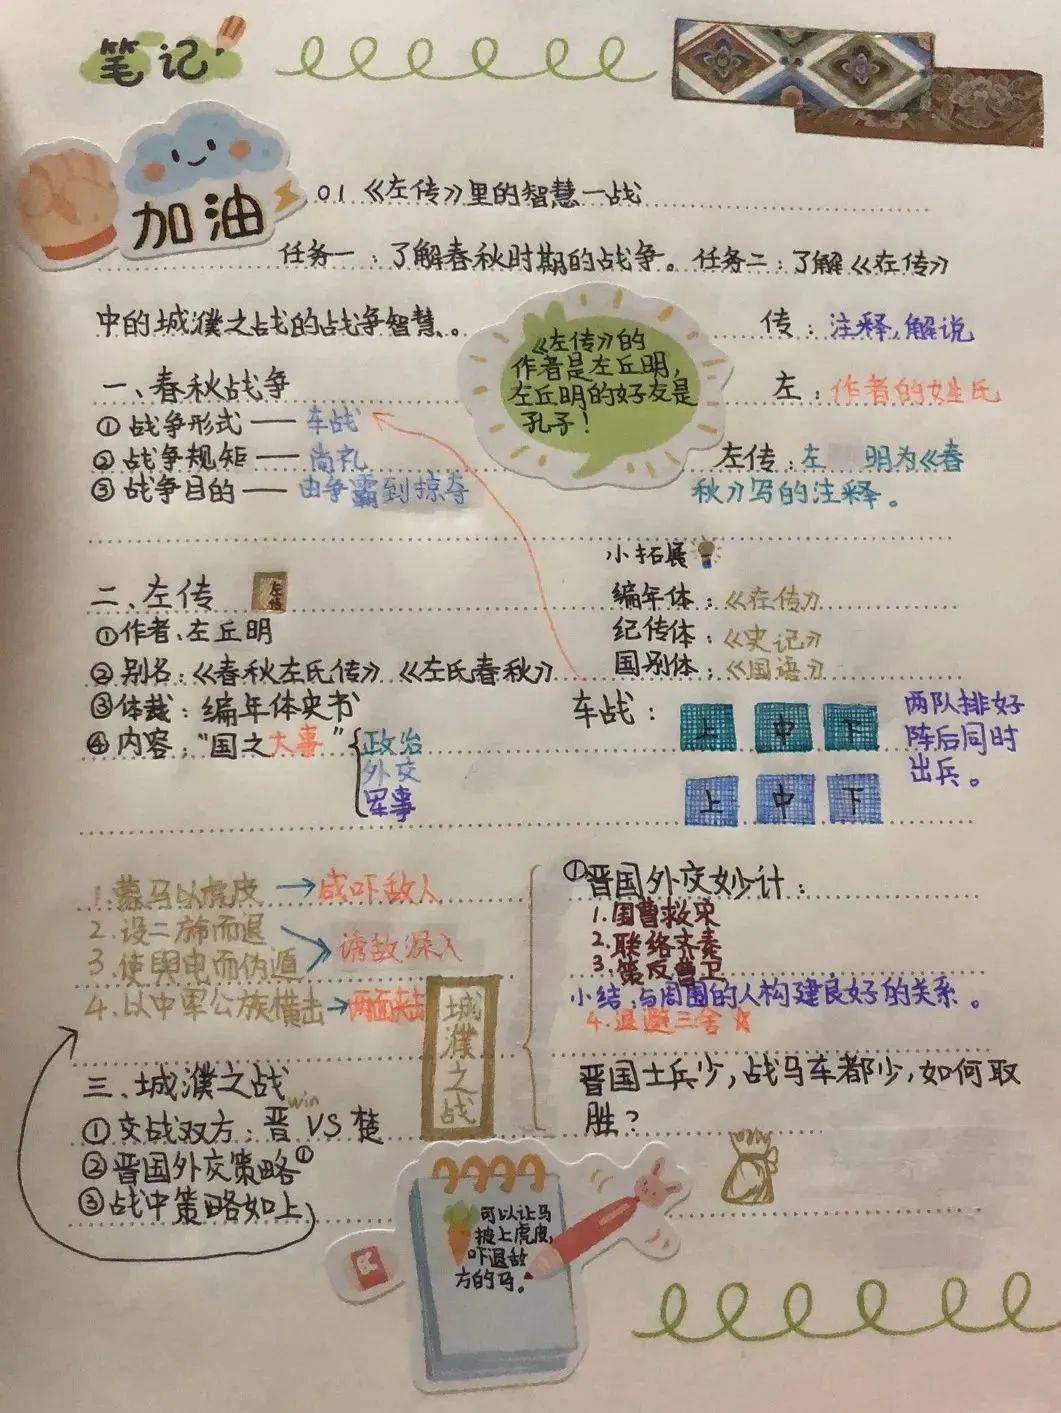 笔记
加油
01 《左传》里的智慧一战
任务一：了解春秋时期的战争。任务二：了解《左传》
中的城濮之战的战争智慧。
《左传》的
作者是左丘明，
左丘明的好友是
孔子！
传：注释，解说
左：作者的姓氏
左传：左 明为《春
秋》写的注释。
一、春秋战争
①战争形式——车战
②战争规矩——尚礼
③战争目的——由争霸到掠夺
小拓展
编年体：《左传》
纪传体：《史记》
国别体：《国语》
二、左传
左传
①作者：左丘明
②别名：《春秋左氏传》《左氏春秋》
③体裁：编年体史书
④内容："国之大事"
政治
外交
军事
车战：
上 中 下
上 中 下
两队排好
阵后同时
出兵。
1.蒙马以虎皮→威吓敌人
2.设二旆而退
3.使舆曳而伪遁
诱敌深入
4.以中军公族横击→两面夹击
城濮之战
①晋国外交妙计：
1.围曹救宋
2.联络齐秦
3.策反曹卫
小结：与周围的人构建良好的关系。
4.退避三舍
晋国士兵少，战马车都少，如何取
胜？
三、城濮之战
win
①交战双方：晋 VS 楚
②晋国外交策略①
③战中策略如上
可以让马
披上虎皮，
吓退敌
方的马。